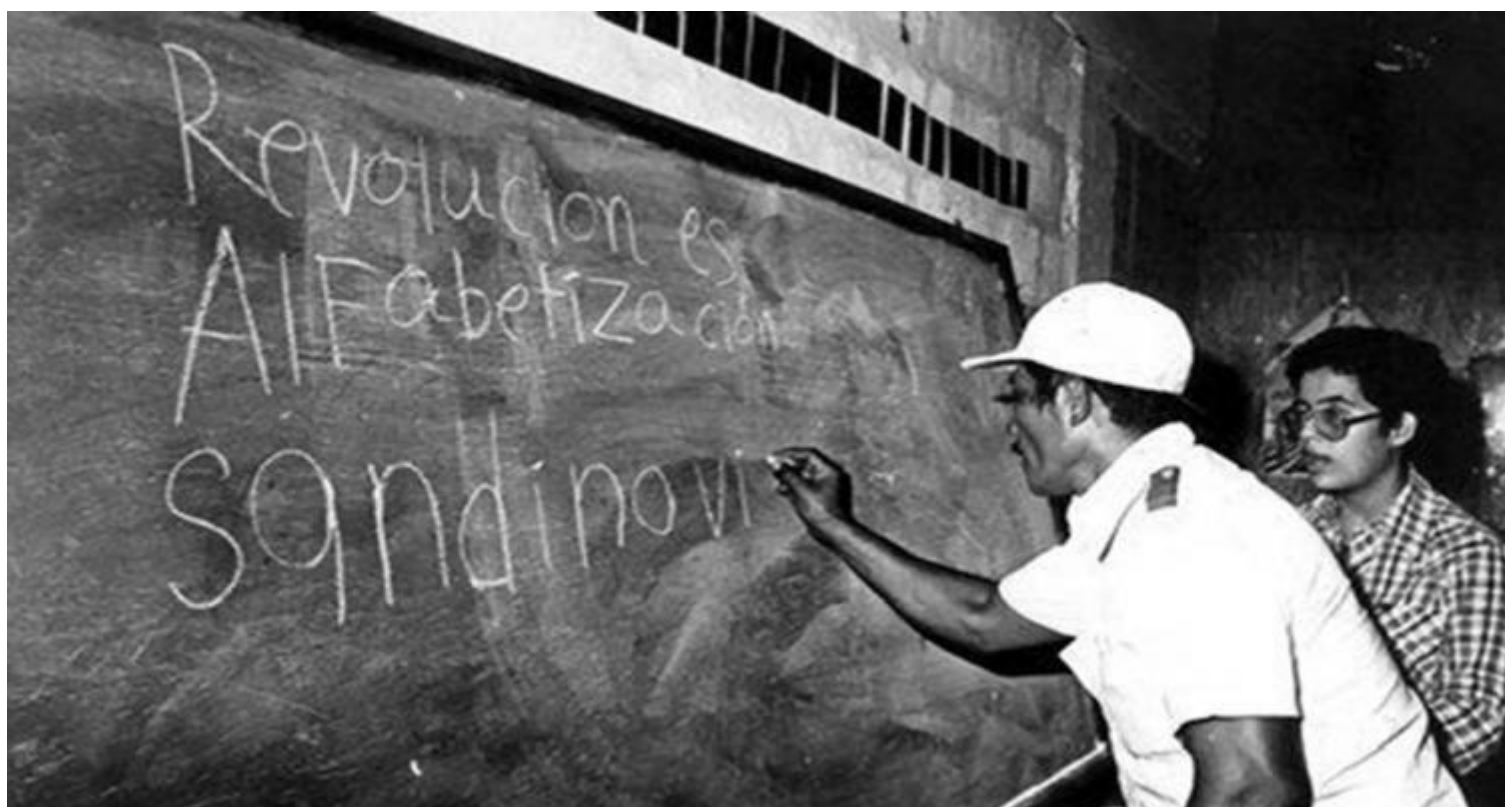 Revolucion es
AlFabetización
Sandinovi